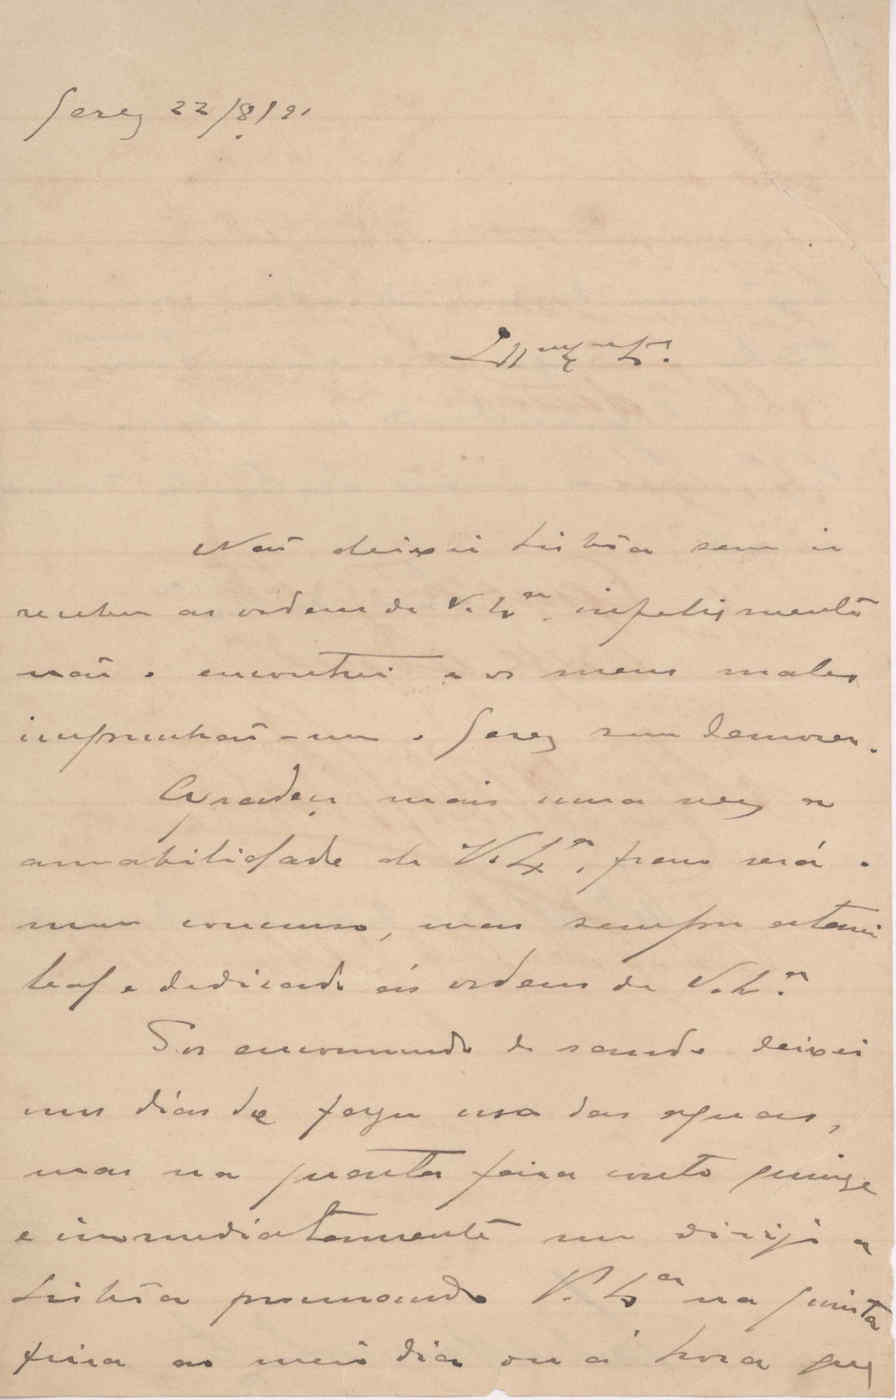 Gerez 22/8/91
Illmo Exmo Sr.
Não deixei Lisbôa sem ir
receber as ordens de V. Exa. infelizmente
não o encontrei e os meus males
impunhão-me o Gerez sem demora.
Agradeço mais uma vez a
amabilidade de V. Exa. fraco será o
meu concurso, mas sempre estarei
leal e dedicado ás ordens de V. Exa.
Por encommodo de saude deixei
uns dias de fazer uso das aguas,
mas na quarta feira conto quinze
e immediatamente me dirijo a
Lisbôa procurando V. Exa na quinta
feira ao meio dia ou á hora que